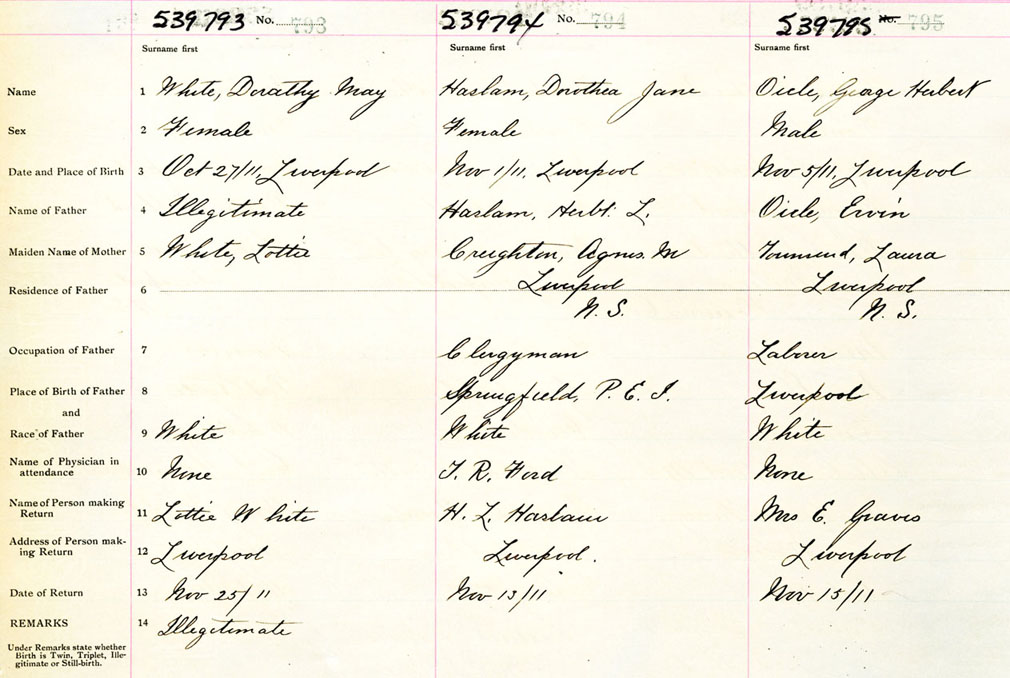 539793 No. 793 539794 No. 794 539795 No. 795
Surname first Surname first Surname first
Name 1 White, Dorathy May Haslam, Dorothea Jane Oicle, George Herbert
Sex 2 Female Female Male
Date and Place of Birth 3 Oct 27/11, Liverpool Nov 1/11. Liverpool Nov 5/11, Liverpool
Name of Father 4 Illegitimate Haslam, Herbt. L. Oicle, Ervin
Maiden Name of Mother 5 White, Lottie Creighton, Agnes. M Townsend, Laura
Residence of Father 6 Liverpool Liverpool
N. S. N. S.
Occupation of Father 7 Clergyman Laborer
Place of Birth of Father 8 Springfield, P. E. I. Liverpool
and
Race of Father 9 White White White
Name of Physician in
attendance 10 None T. R. Ford None
Name of Person making
Return 11 Lottie White H. L. Haslam Mrs E. Graves
Address of Person mak-
ing Return 12 Liverpool Liverpool. Liverpool
Date of Return 13 Nov 25/11 Nov 13/11 Nov 15/11
REMARKS 14 Illegitimate
Under Remarks state whether
Birth is Twin, Triplet, Ille-
gitimate or Still-birth.